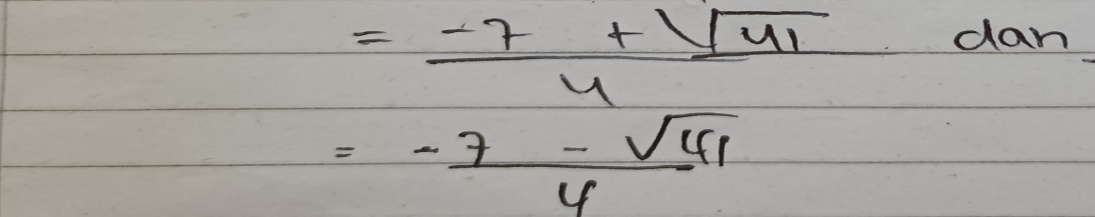 = (-7 + √41) / 4 dan
= (-7 - √41) / 4